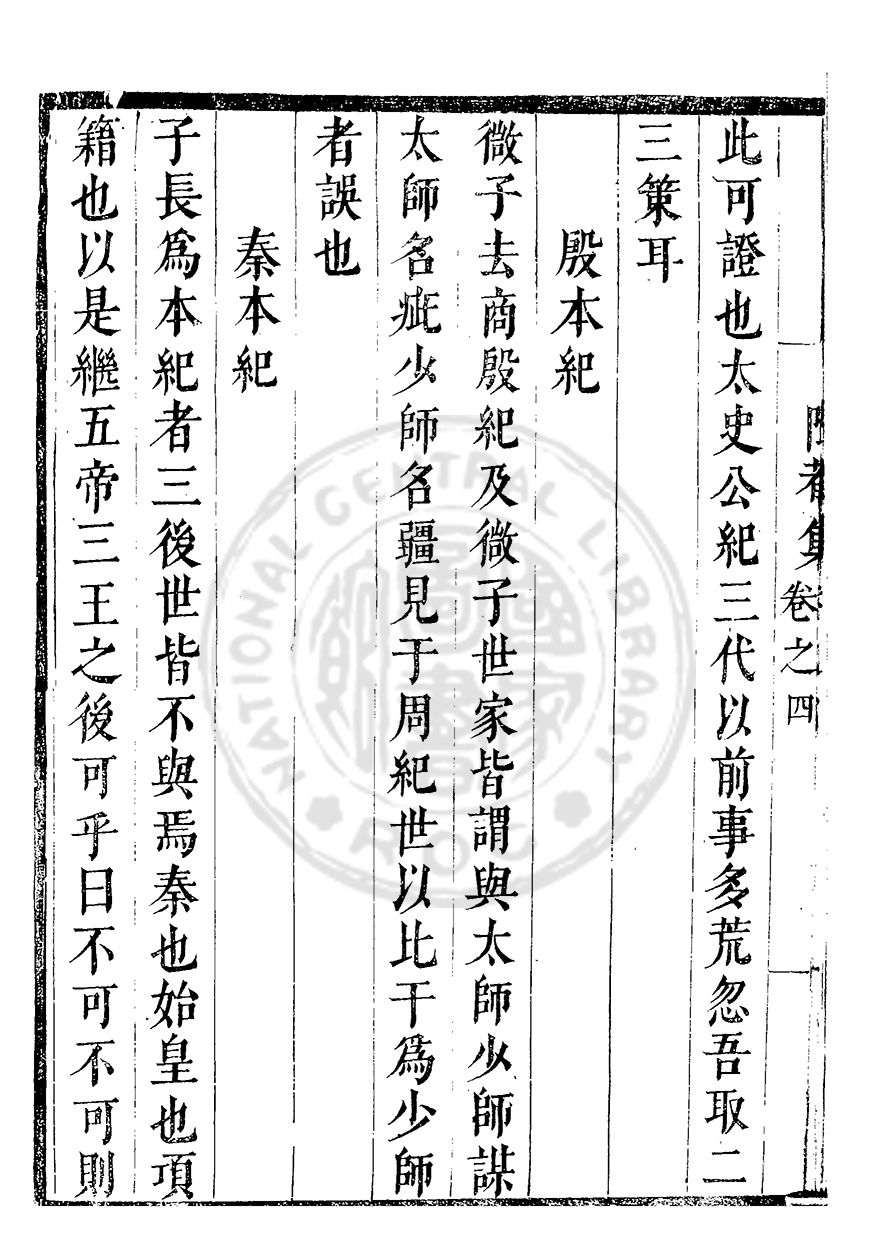 集卷之四
此可證也太史公紀三代以前事多荒忽吾取二
三策耳
殷本紀
微子去商殷紀及微子世家皆謂與太師少師謀
太師名疵少師名疆見于周紀世以比干爲少師
者誤也
秦本紀
子長爲本紀者三後世皆不與焉秦也始皇也項
籍也以是繼五帝三王之後可乎曰不可不可則
NATIONAL CENTRAL LIBRARY
R.O.C.